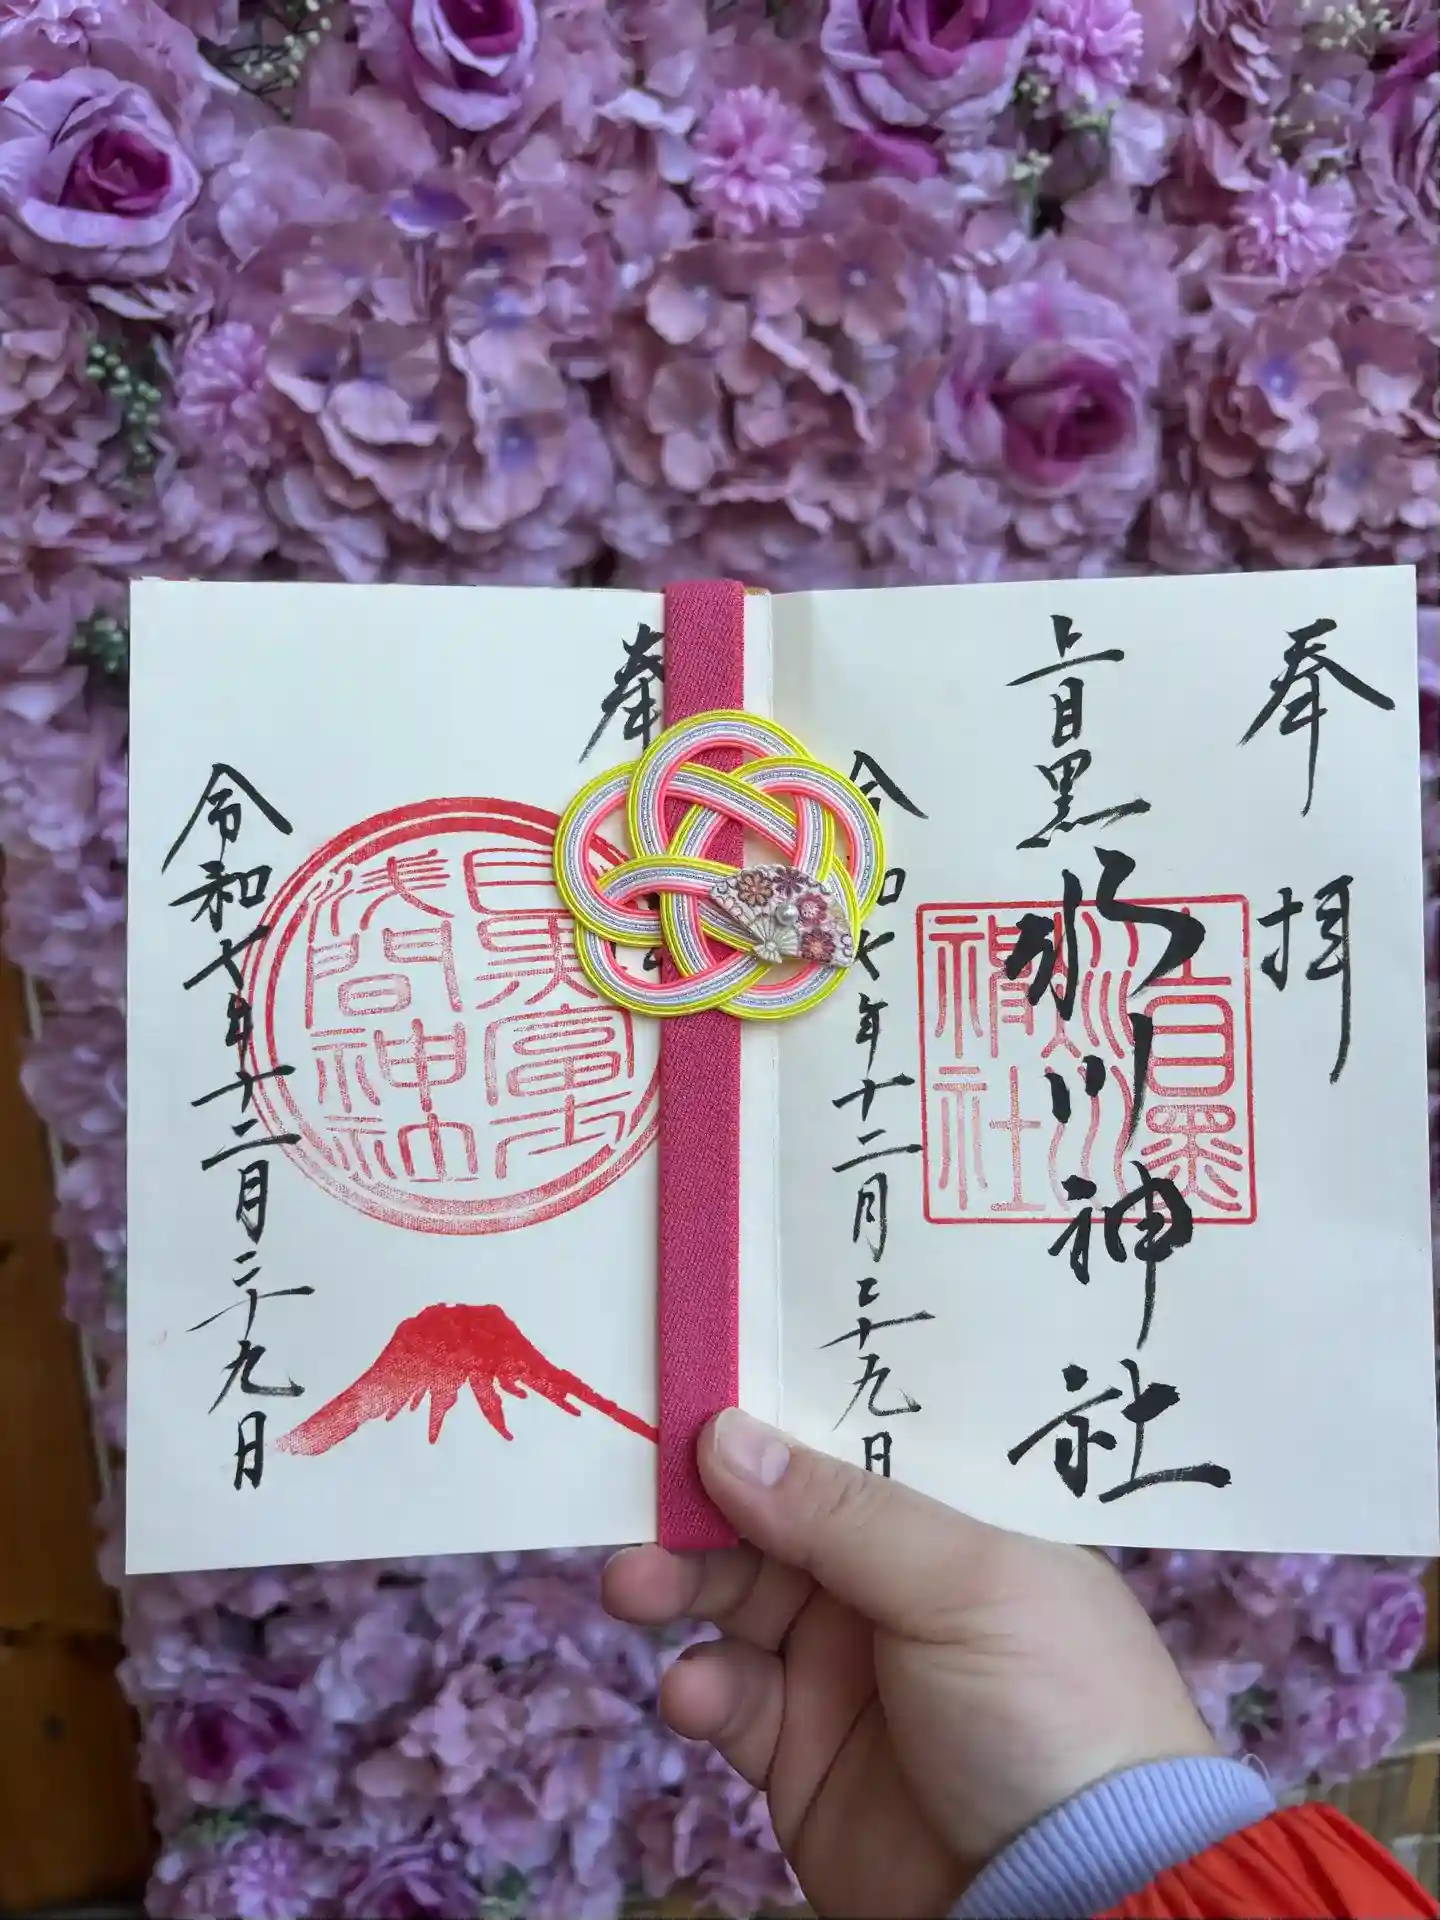 奉拝
上目黒氷川神社
上目黒
氷川
神社
令和七年十二月二十九日
奉
目黒富士
浅間神社
令和七年十二月二十九日